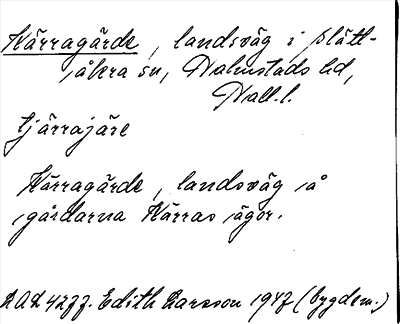 Kärragärde, landsväg i Slätt-
åkra sn, Halmstads hd,
Hall. l.
tjärrajäre
Kärragärde, landsväg å
gårdarna Kärras ägor.
DAL 4277. Edith Larsson 1947 (bygdem.)